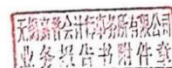 无锡宜兴会计师事务所有限公司
业务报告书附件章